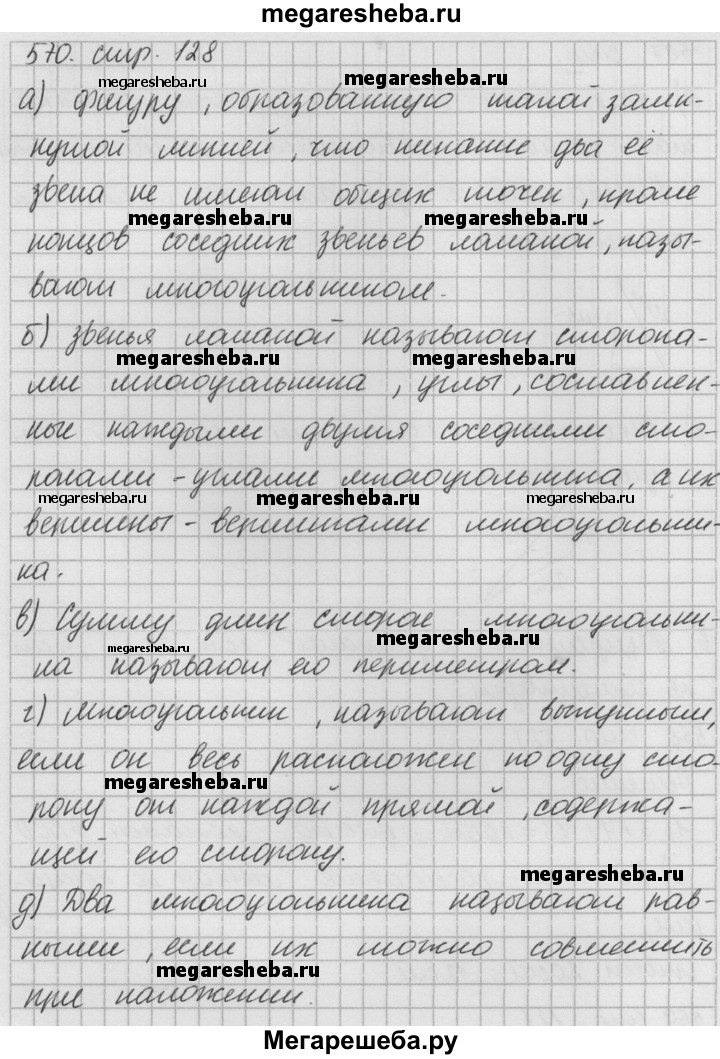 megaresheba.ru
570. стр. 128
megaresheba.ru megaresheba.ru
а) фигуру, образованную такой замк-
нутой линией, что никакие два её
звена не имеют общих точек, кроме
megaresheba.ru megaresheba.ru
концов соседних звеньев ломаной, назы-
вают многоугольником.
б) звенья ломаной называют сторона-
megaresheba.ru megaresheba.ru
ми многоугольника, углы, составлен-
ные каждыми двумя соседними сто-
ронами - углами многоугольника, а их
megaresheba.ru megaresheba.ru megaresheba.ru
вершины - вершинами многоугольни-
ка.
в) Сумму длин сторон многоугольни-
megaresheba.ru megaresheba.ru
ка называют его периметром.
г) многоугольник, называют выпуклым,
если он весь расположен по одну сто-
megaresheba.ru
рону от каждой прямой, содержа-
щей его сторону.
megaresheba.ru
д) Два многоугольника называют рав-
ными, если их можно совместить
megaresheba.ru
при наложении.
Мегарешеба.ру